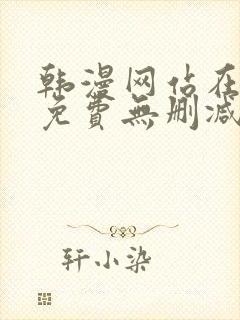 韩漫网站在
免費無删减
轩小染